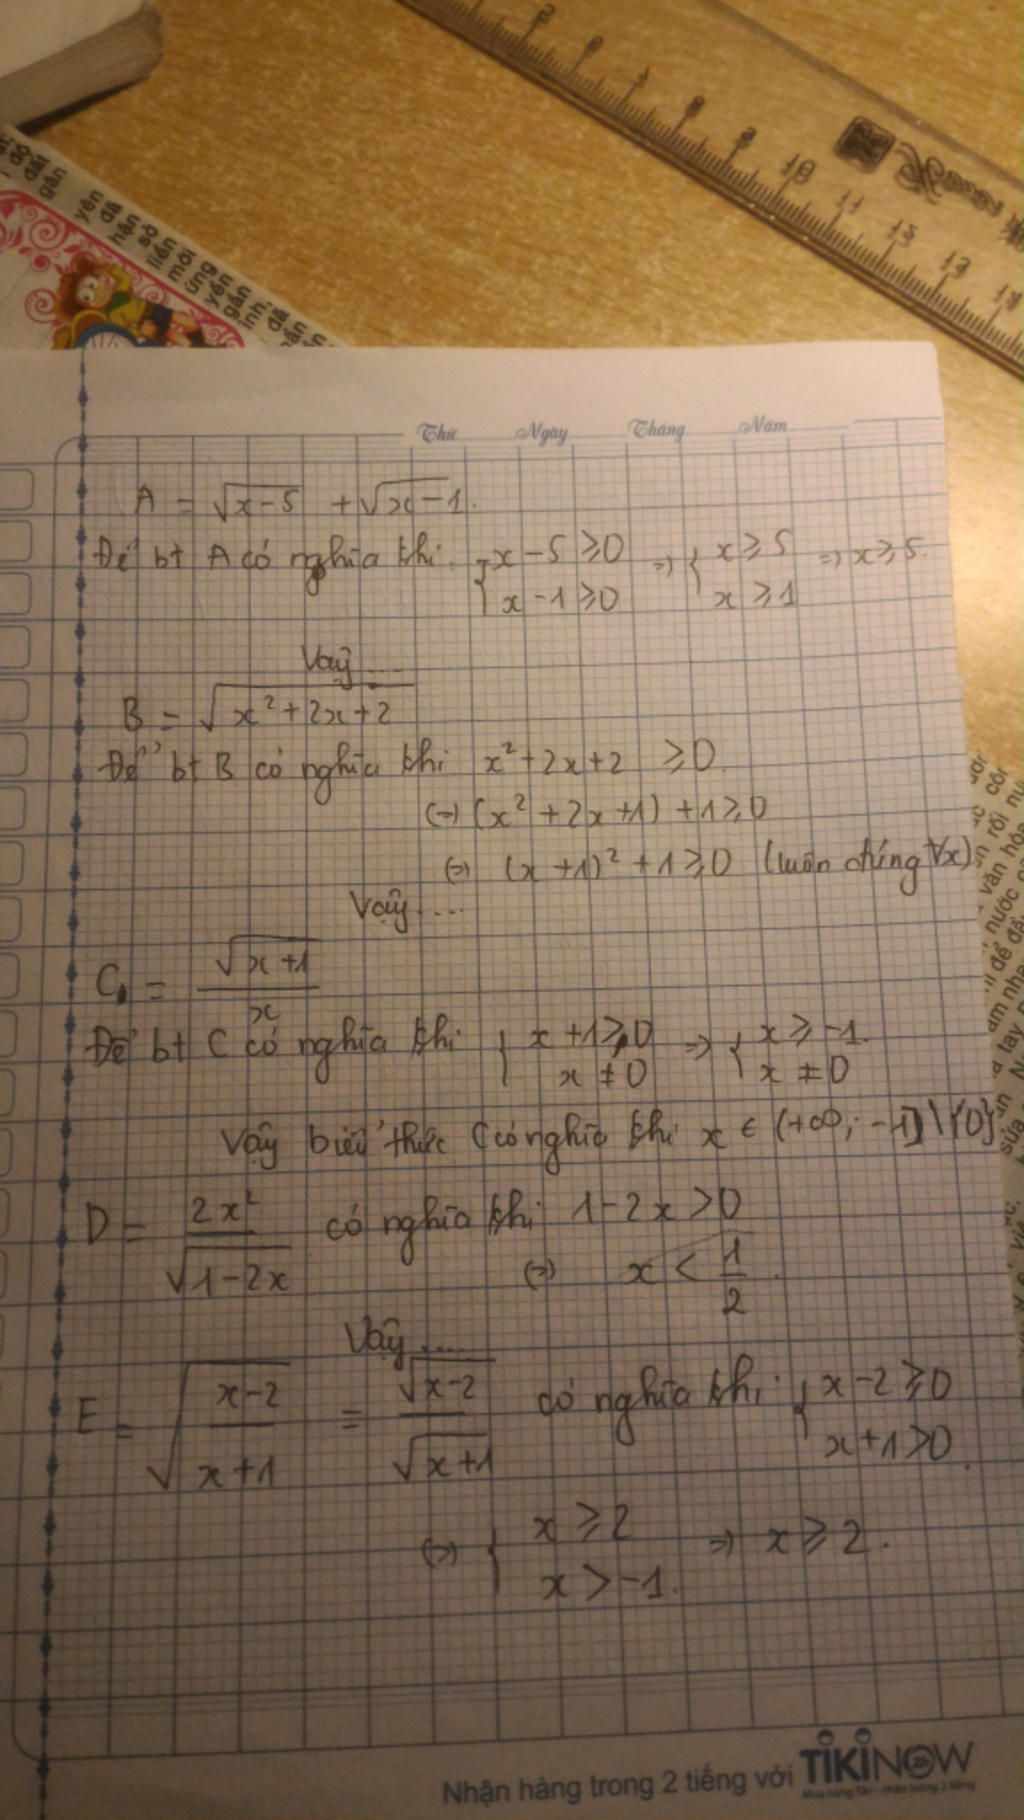 10 11 12 13 14
yên
đã
hận
sở
liên
mới
ứng
yên
gần
Thứ Ngày Tháng Năm
A = √x-5 + √x-1.
Để bt A có nghĩa khi: { x-5 ≥0 x-1 ≥0 => { x≥5 x≥1 => x≥5.
Vậy ....
B = √x²+2x+2
Để bt B có nghĩa khi x²+2x+2 ≥0.
(=) (x²+2x+1)+1≥0
(=) (x+1)²+1≥0 (luôn đúng ∀x)
Vậy....
C = √x+1 / x
Để bt C có nghĩa khi { x+1≥0 x≠0 => { x≥-1. x≠0
Vậy biểu thức C có nghĩa khi x ∈ (+∞; -1]\{0}
D = 2x² / √1-2x có nghĩa khi 1-2x>0
(=) x < 1/2.
Vậy .....
E = √(x-2 / x+1) = √x-2 / √x+1 có nghĩa khi { x-2≥0 x+1>0.
(=) { x≥2 x>-1. => x≥2.
Nhận hàng trong 2 tiếng với TIKINOW